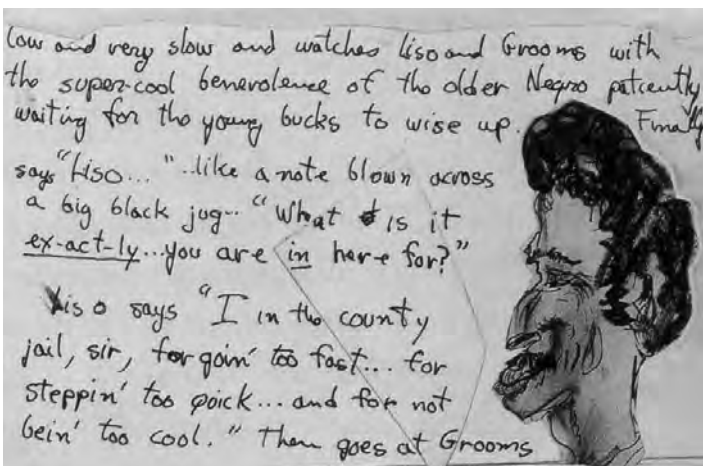 low and very slow and watches Liso and Grooms with
the super-cool benevolence of the older Negro patiently
waiting for the young bucks to wise up. Finally
says "Liso..." ..like a note blown across
a big black jug.. "What is it
ex-act-ly...you are in here for?"
Liso says "I in the county
jail, sir, for goin' too fast... for
steppin' too qoick... and for not
bein' too cool." Then goes at Grooms